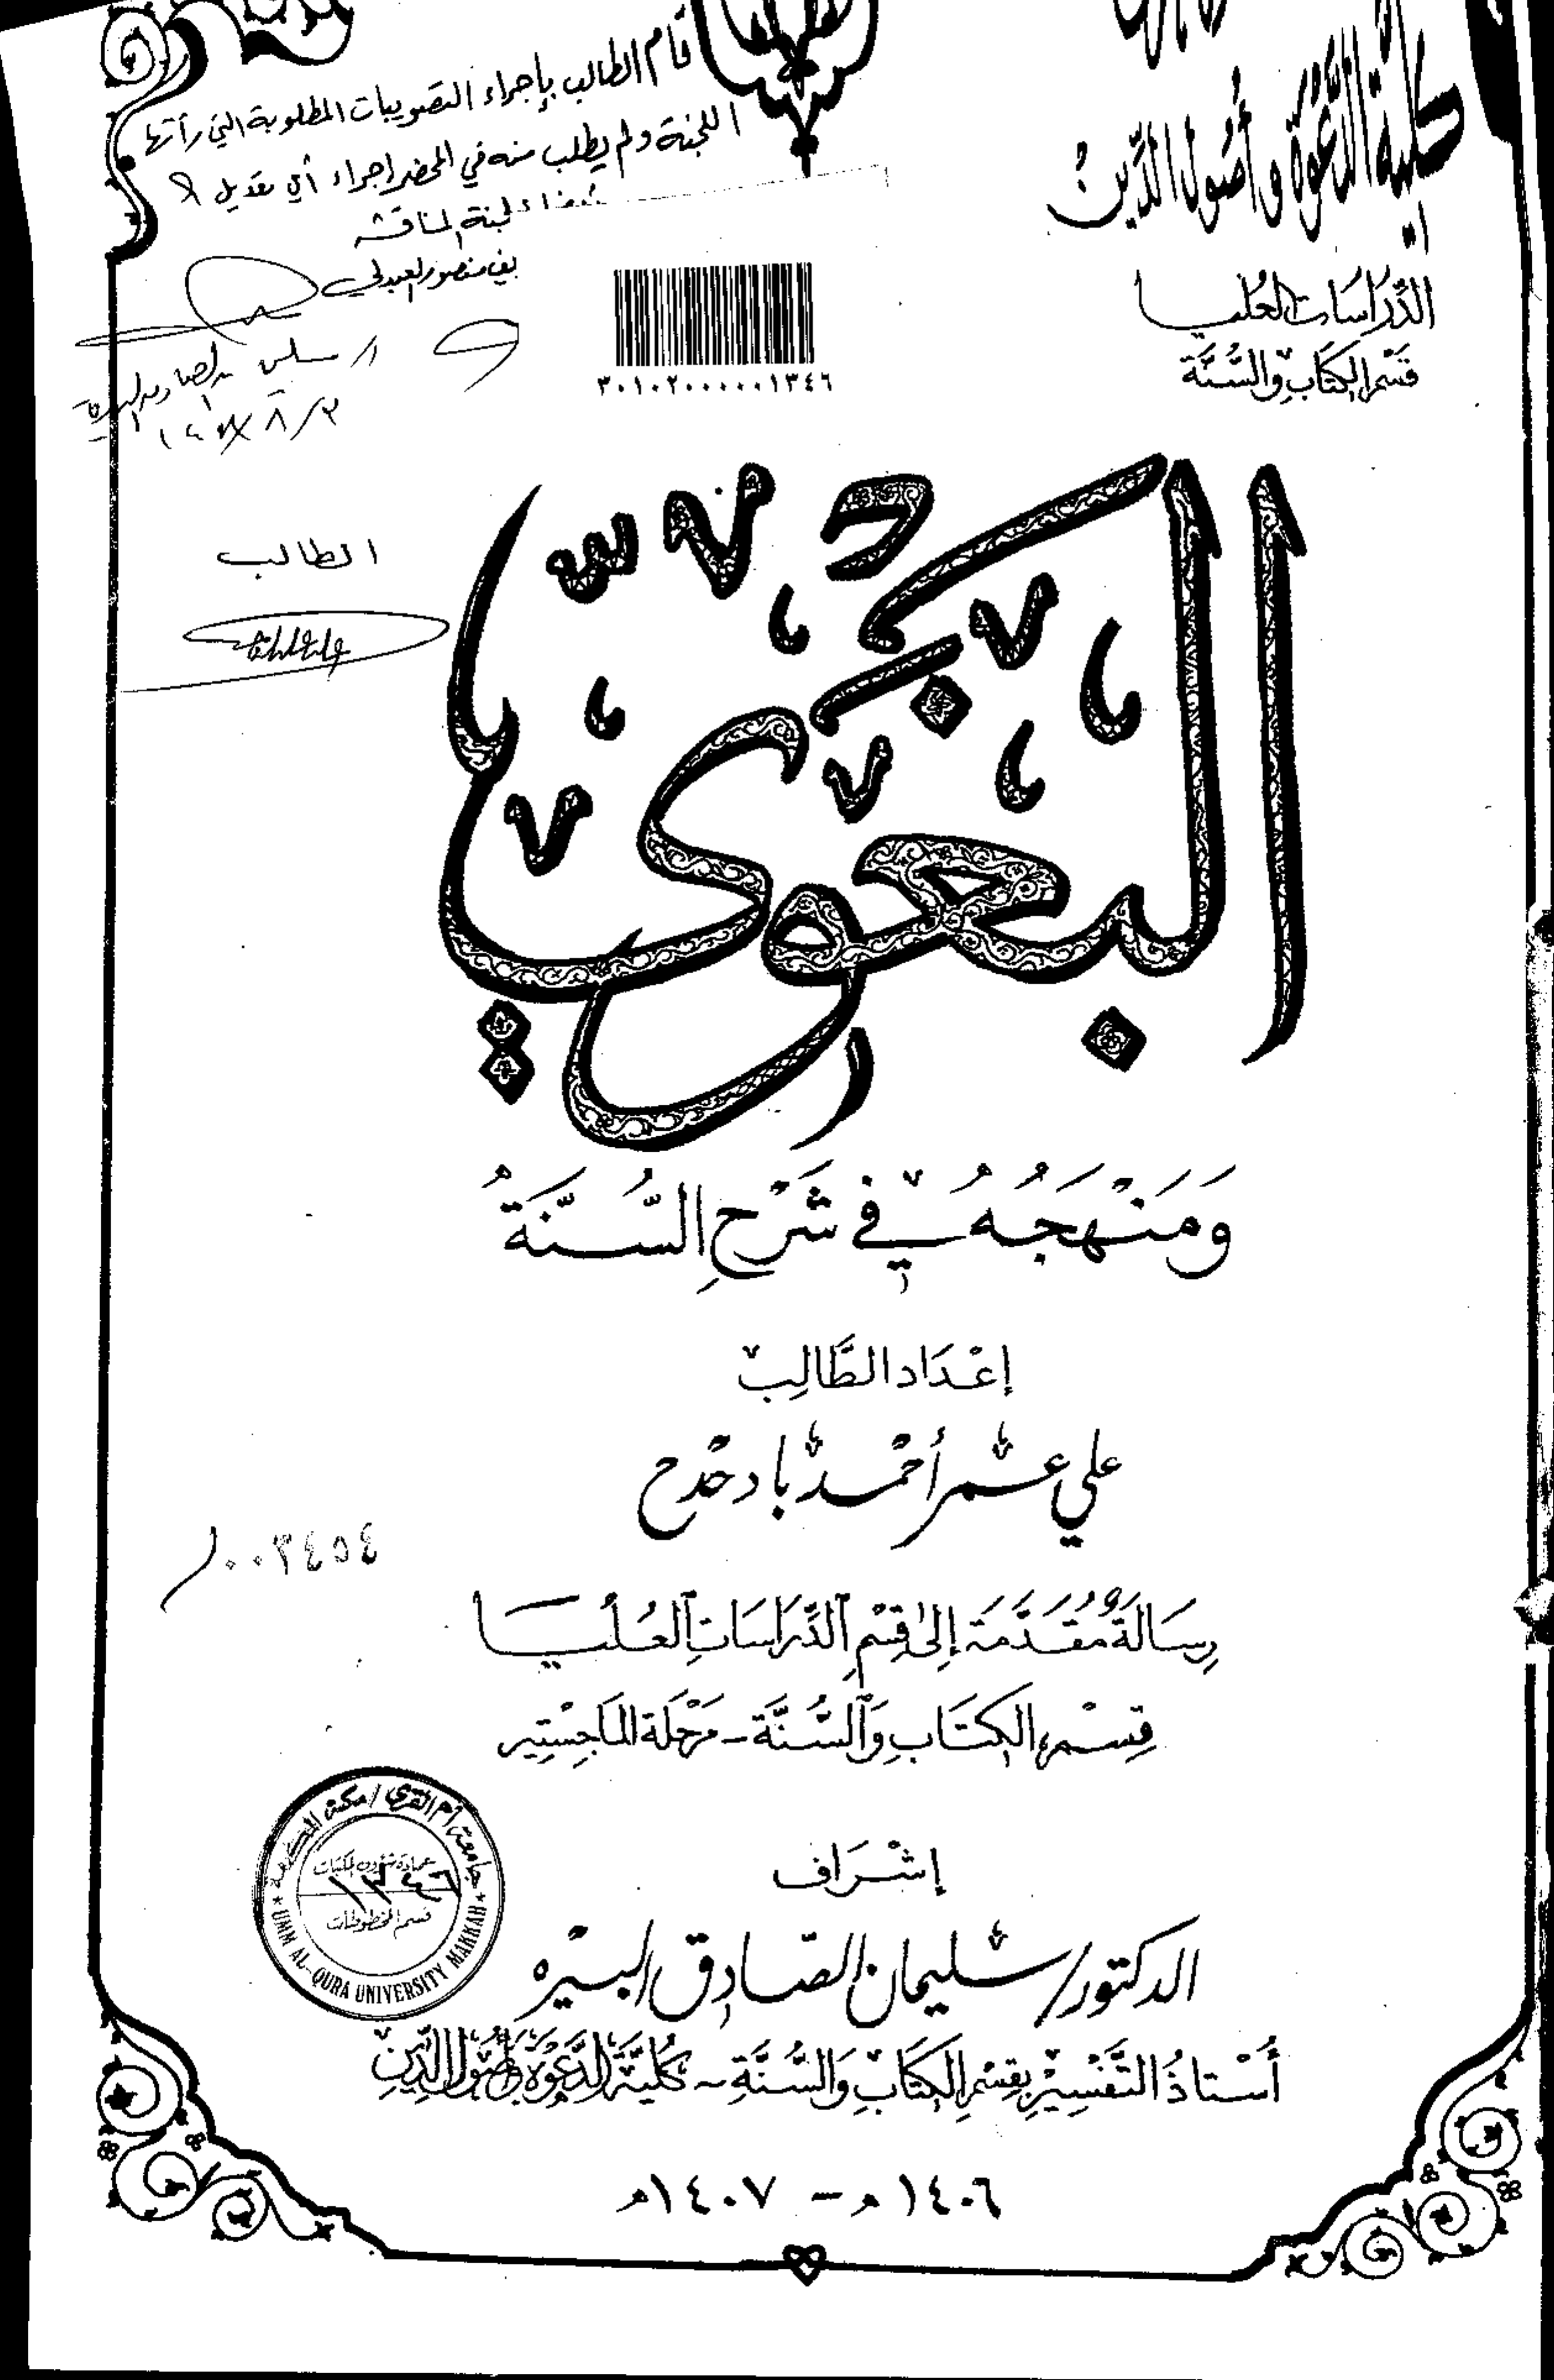 كلية الدعوة وأصول الدين
الدِّرَاسَات العُليَا
قسْم الكِتَابِ والسُّنَّة
قام الطالب بإجراء التصويبات المطلوبة التي رأتها
اللجنة ولم يطلب منه في المحضر إجراء أي تعديل
لجنة المناقشة
٣٠١٠٢٠٠٠٠٠١٣٤٦
الطالب
البَغَوي
وَمَنْهَجُهُ فِي شَرْحِ السُّنَّة
إعْدَاد الطَّالِب
علي عمر أحمد بادحدح
٠٠٣٤٥٤
رِسَالَةٌ مُقَدَّمَة إِلى قِسْمِ الدِّرَاسَاتِ العُليَا
قِسْم الكِتَابِ وَالسُّنَّة - مَرْحَلَة المَاجِسْتِير
إشْرَاف
الدكتور/ سليمان الصّادق البيره
أُسْتاذُ التَّفْسِيْرِ بِقِسْمِ الكِتَابِ وَالسُّنَّةِ - كُليَّة الدَّعْوَة وَأصُول الدِّين
١٤٠٦ه - ١٤٠٧ه
جامعة أم القرى / مكة المكرمة
عمادة شؤون المكتبات
١٣٤٦
قسم المخطوطات
UMM AL-QURA UNIVERSITY MAKKAH